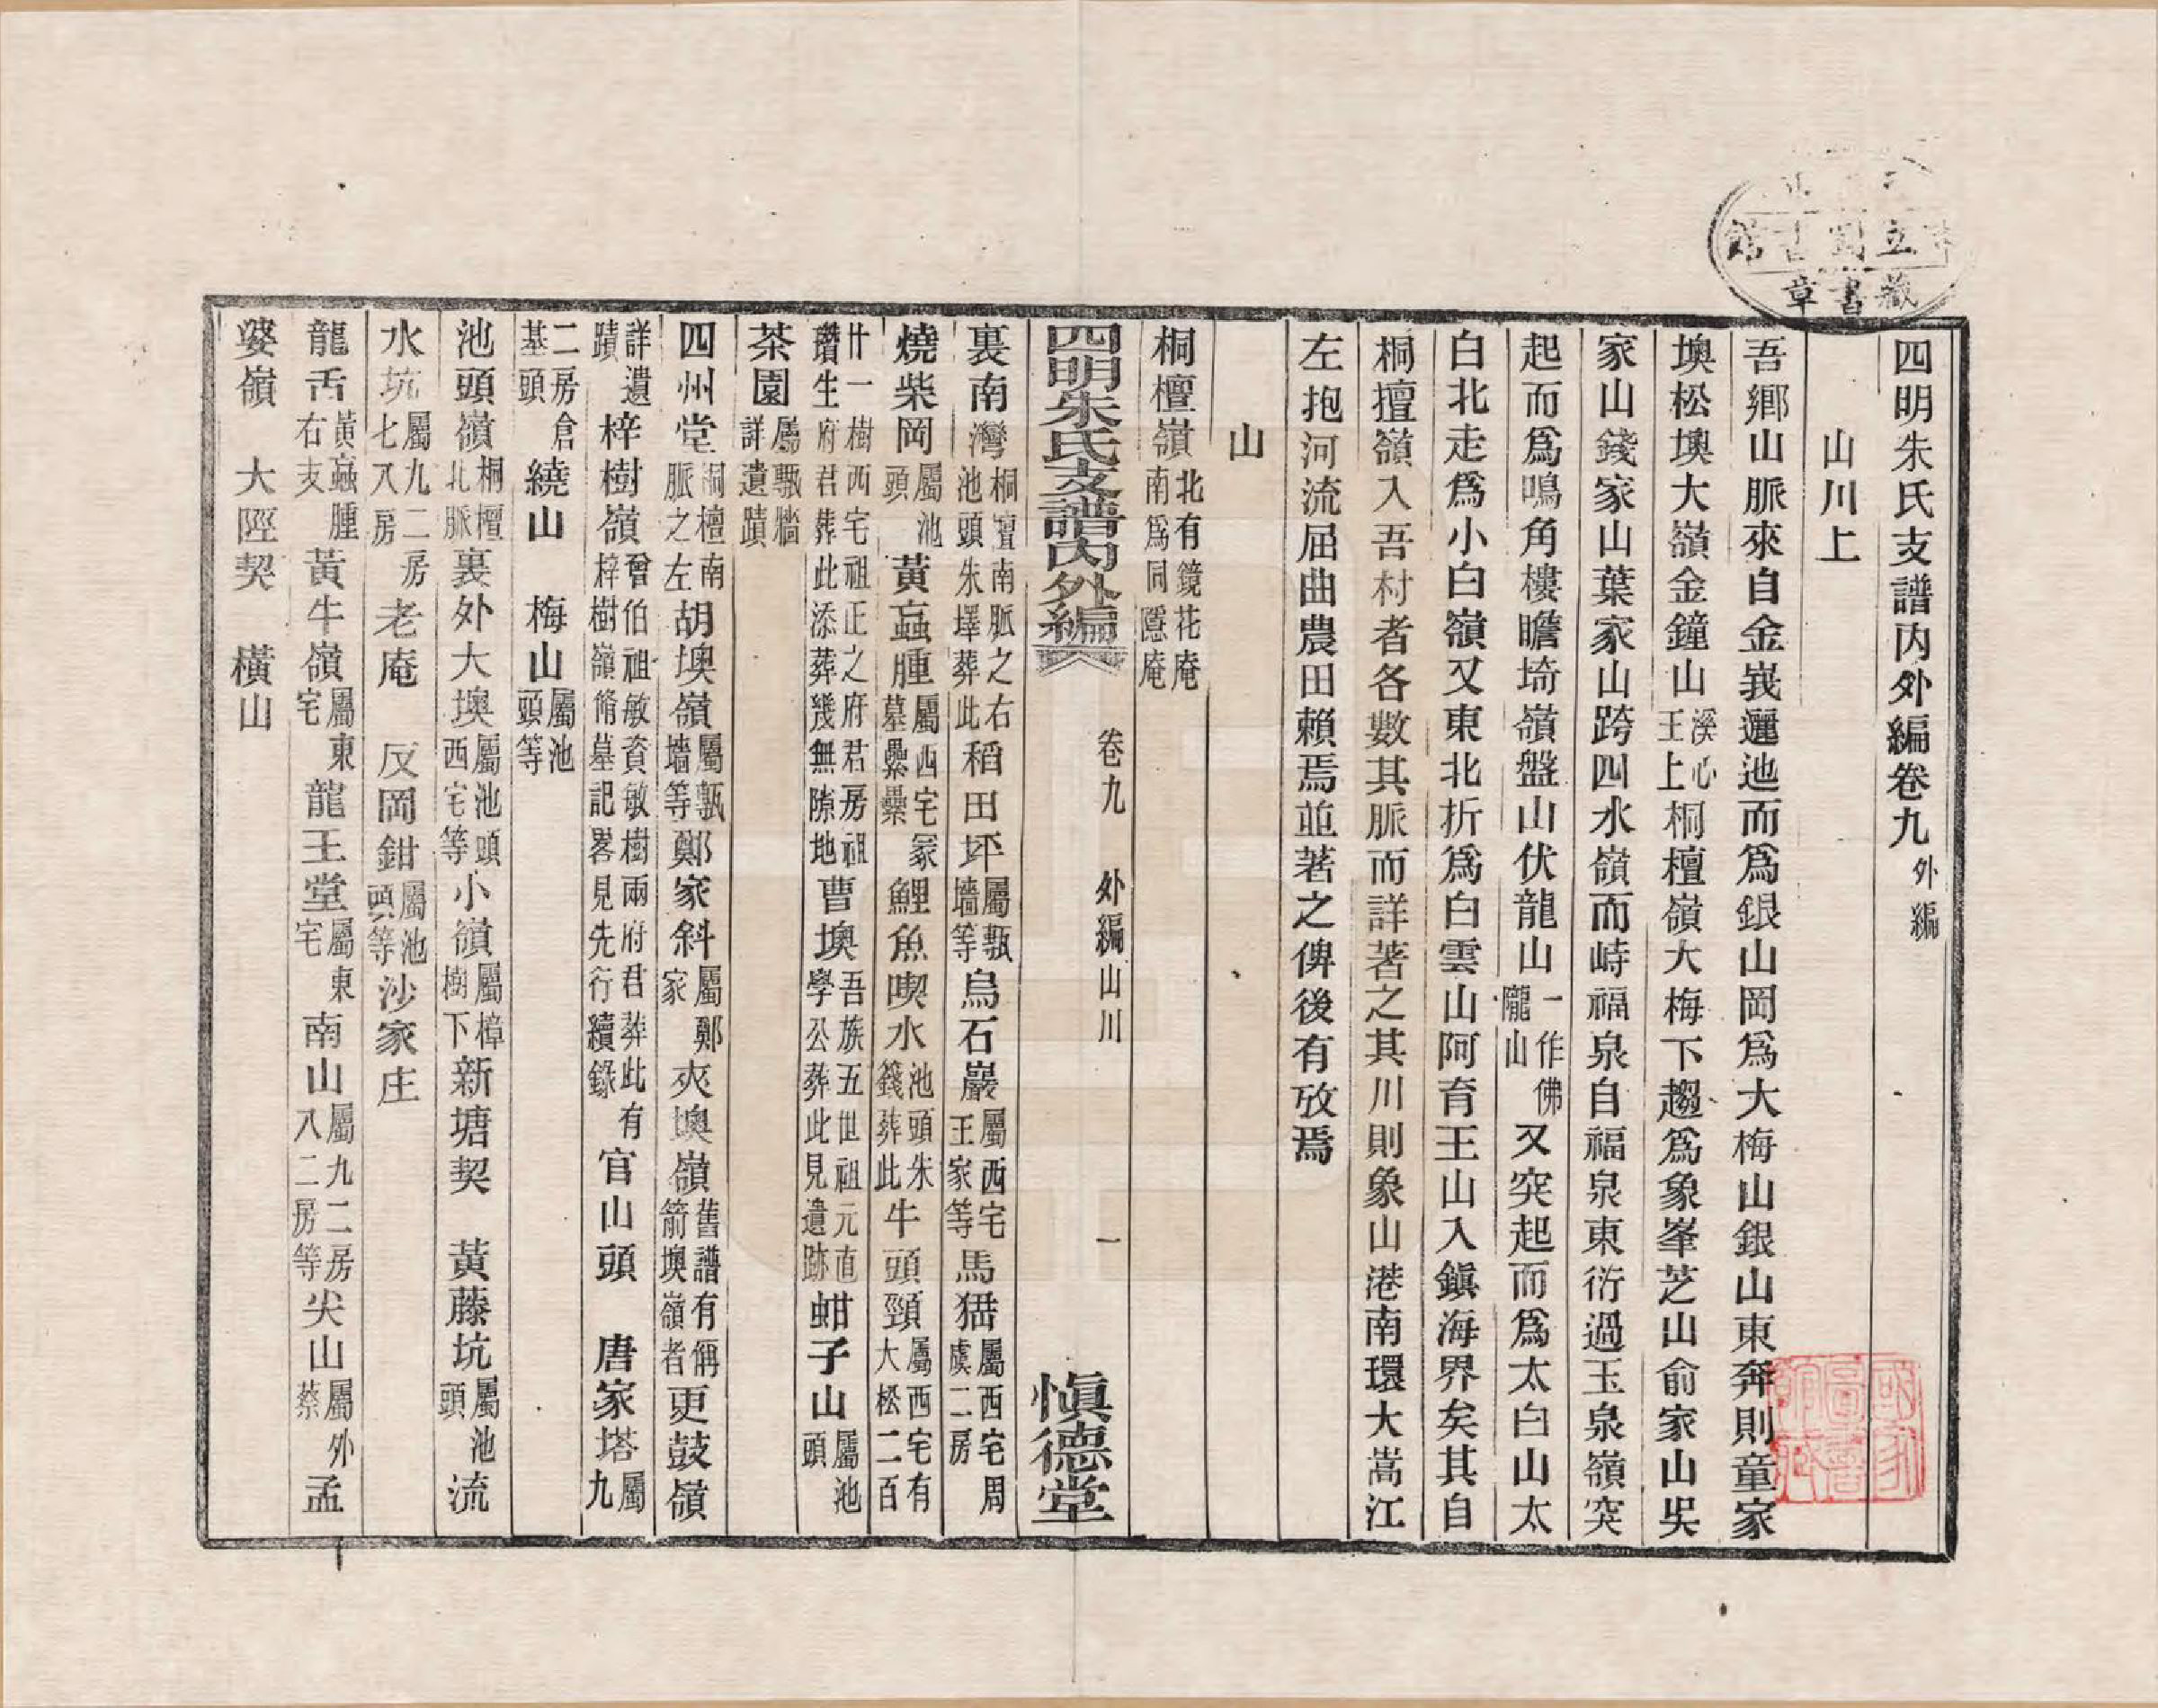 四明朱氏支譜內外編卷九外編
山川上
吾鄉山脈來自金峩邐迤而爲銀山岡爲大梅山銀山東奔則童家
墺松墺大嶺金鐘山溪心王上桐檀嶺大梅下趨爲象峯芝山俞家山吳
家山錢家山葉家山跨四水嶺而峙福泉自福泉東衍過玉泉嶺突
起而爲鳴角樓瞻埼嶺盤山伏龍山一作佛隴山又突起而爲太白山太
白北走爲小白嶺又東北折爲白雲山阿育王山入鎭海界矣其自
桐擅嶺入吾村者各數其脈而詳著之其川則象山港南環大嵩江
左抱河流屈曲農田賴焉並著之俾後有攷焉
山
桐檀嶺北有鏡花庵南爲同隱庵
四明朱氏支譜內外編 卷九 外編山川 一 愼德堂
裏南灣桐壇南脈之右池頭朱墿葬此稻田坪屬甎墻等烏石巖屬西宅王家等馬猫屬西宅周虞二房
燒柴岡屬池頭黃蝱腫屬西宅冢墓纍纍鯉魚喫水池頭朱籛葬此牛頭頸屬西宅有大松二百
廿一樹西宅祖正之府君房祖瓚生府君葬此添葬幾無隙地曹墺吾族五世祖元直學公葬此見遺跡蚶子山屬池頭
茶園屬甎牆詳遺蹟
四州堂桐檀南脈之左胡墺嶺屬甎墻等鄭家斜屬鄭家夾墺嶺舊譜有偁箭墺嶺者更鼓嶺
詳遺蹟梓樹嶺曾伯祖敏資敏樹兩府君葬此有梓樹嶺脩墓記畧見先行續錄官山頭 唐家塔屬九
二房倉基頭繞山 梅山屬池頭等
池頭嶺桐檀北脈裏外大墺屬池頭西宅等小嶺屬樟樹下新塘契 黃藤坑屬池頭流
水坑屬九二房七八房老庵 反岡鉗屬池頭等沙家庄
龍舌黃蝱腫右支黃牛嶺屬東宅龍王堂屬東宅南山屬九二房八二房等尖山屬外蔡孟
婆嶺 大陘契 橫山